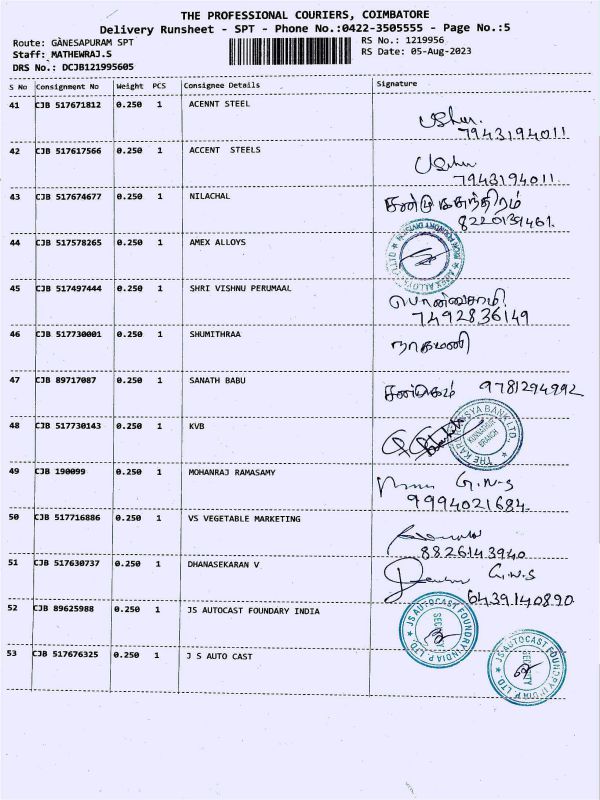 THE PROFESSIONAL COURIERS, COIMBATORE
Delivery Runsheet - SPT - Phone No.:0422-3505555 - Page No.:5
Route: GANESAPURAM SPT
RS No.: 1219956
Staff: MATHEWRAJ.S
RS Date: 05-Aug-2023
DRS No.: DCJB121995605
S No Consignment No Weight PCS Consignee Details Signature
41 CJB 517671812 0.250 1 ACENNT STEEL
7943194011
42 CJB 517617566 0.250 1 ACCENT STEELS
7943194011
43 CJB 517674677 0.250 1 NILACHAL
8220139461
44 CJB 517578265 0.250 1 AMEX ALLOYS
45 CJB 517497444 0.250 1 SHRI VISHNU PERUMAAL
பொன்சாமி
7492836149
46 CJB 517730001 0.250 1 SHUMITHRAA
நாகமணி
47 CJB 89717087 0.250 1 SANATH BABU
9781294992
48 CJB 517730143 0.250 1 KVB
THE KARUR VYSYA BANK LTD.
BRANCH
49 CJB 190099 0.250 1 MOHANRAJ RAMASAMY
G.N.S
9994021684
50 CJB 517716886 0.250 1 VS VEGETABLE MARKETING
8826143940
51 CJB 517630737 0.250 1 DHANASEKARAN V
G.N.S
6439140890
52 CJB 89625988 0.250 1 JS AUTOCAST FOUNDARY INDIA
JS AUTOCAST FOUNDRY INDIA P. LTD.
SECURITY
53 CJB 517676325 0.250 1 J S AUTO CAST
JS AUTOCAST FOUNDRY INDIA P. LTD.
SECURITY